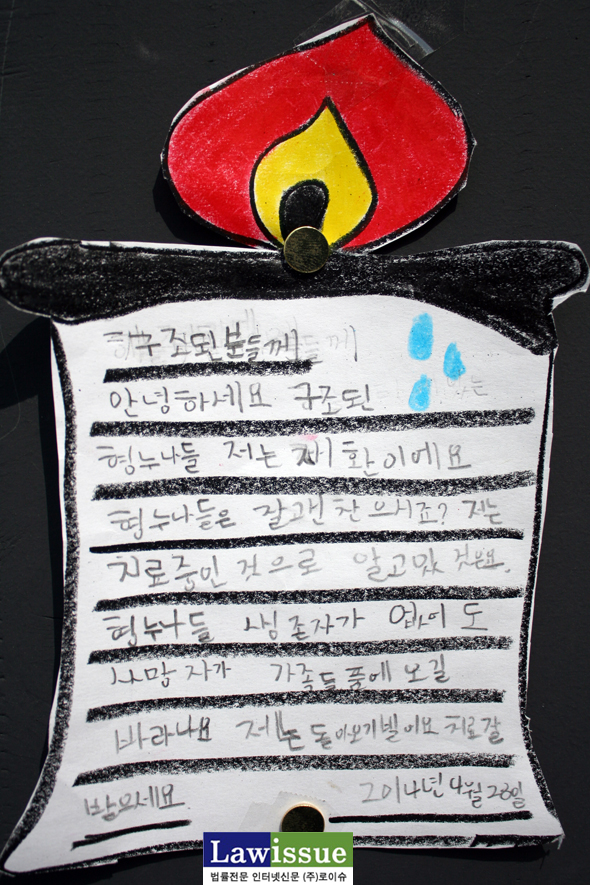 구조된분들께
안녕하세요 구조된
형누나들 저는 재환이에요
형누나들은 잘괜찬으시죠? 저는
치료중인것으로 알고있것은요.
형누나들 생존자가 없어도
사망자가 가족들품에 오길
바라나요 저는 돌아오기빌어요 치료잘
받으세요. 2014년 4월 26일
Lawissue
법률전문 인터넷신문 (주)로이슈